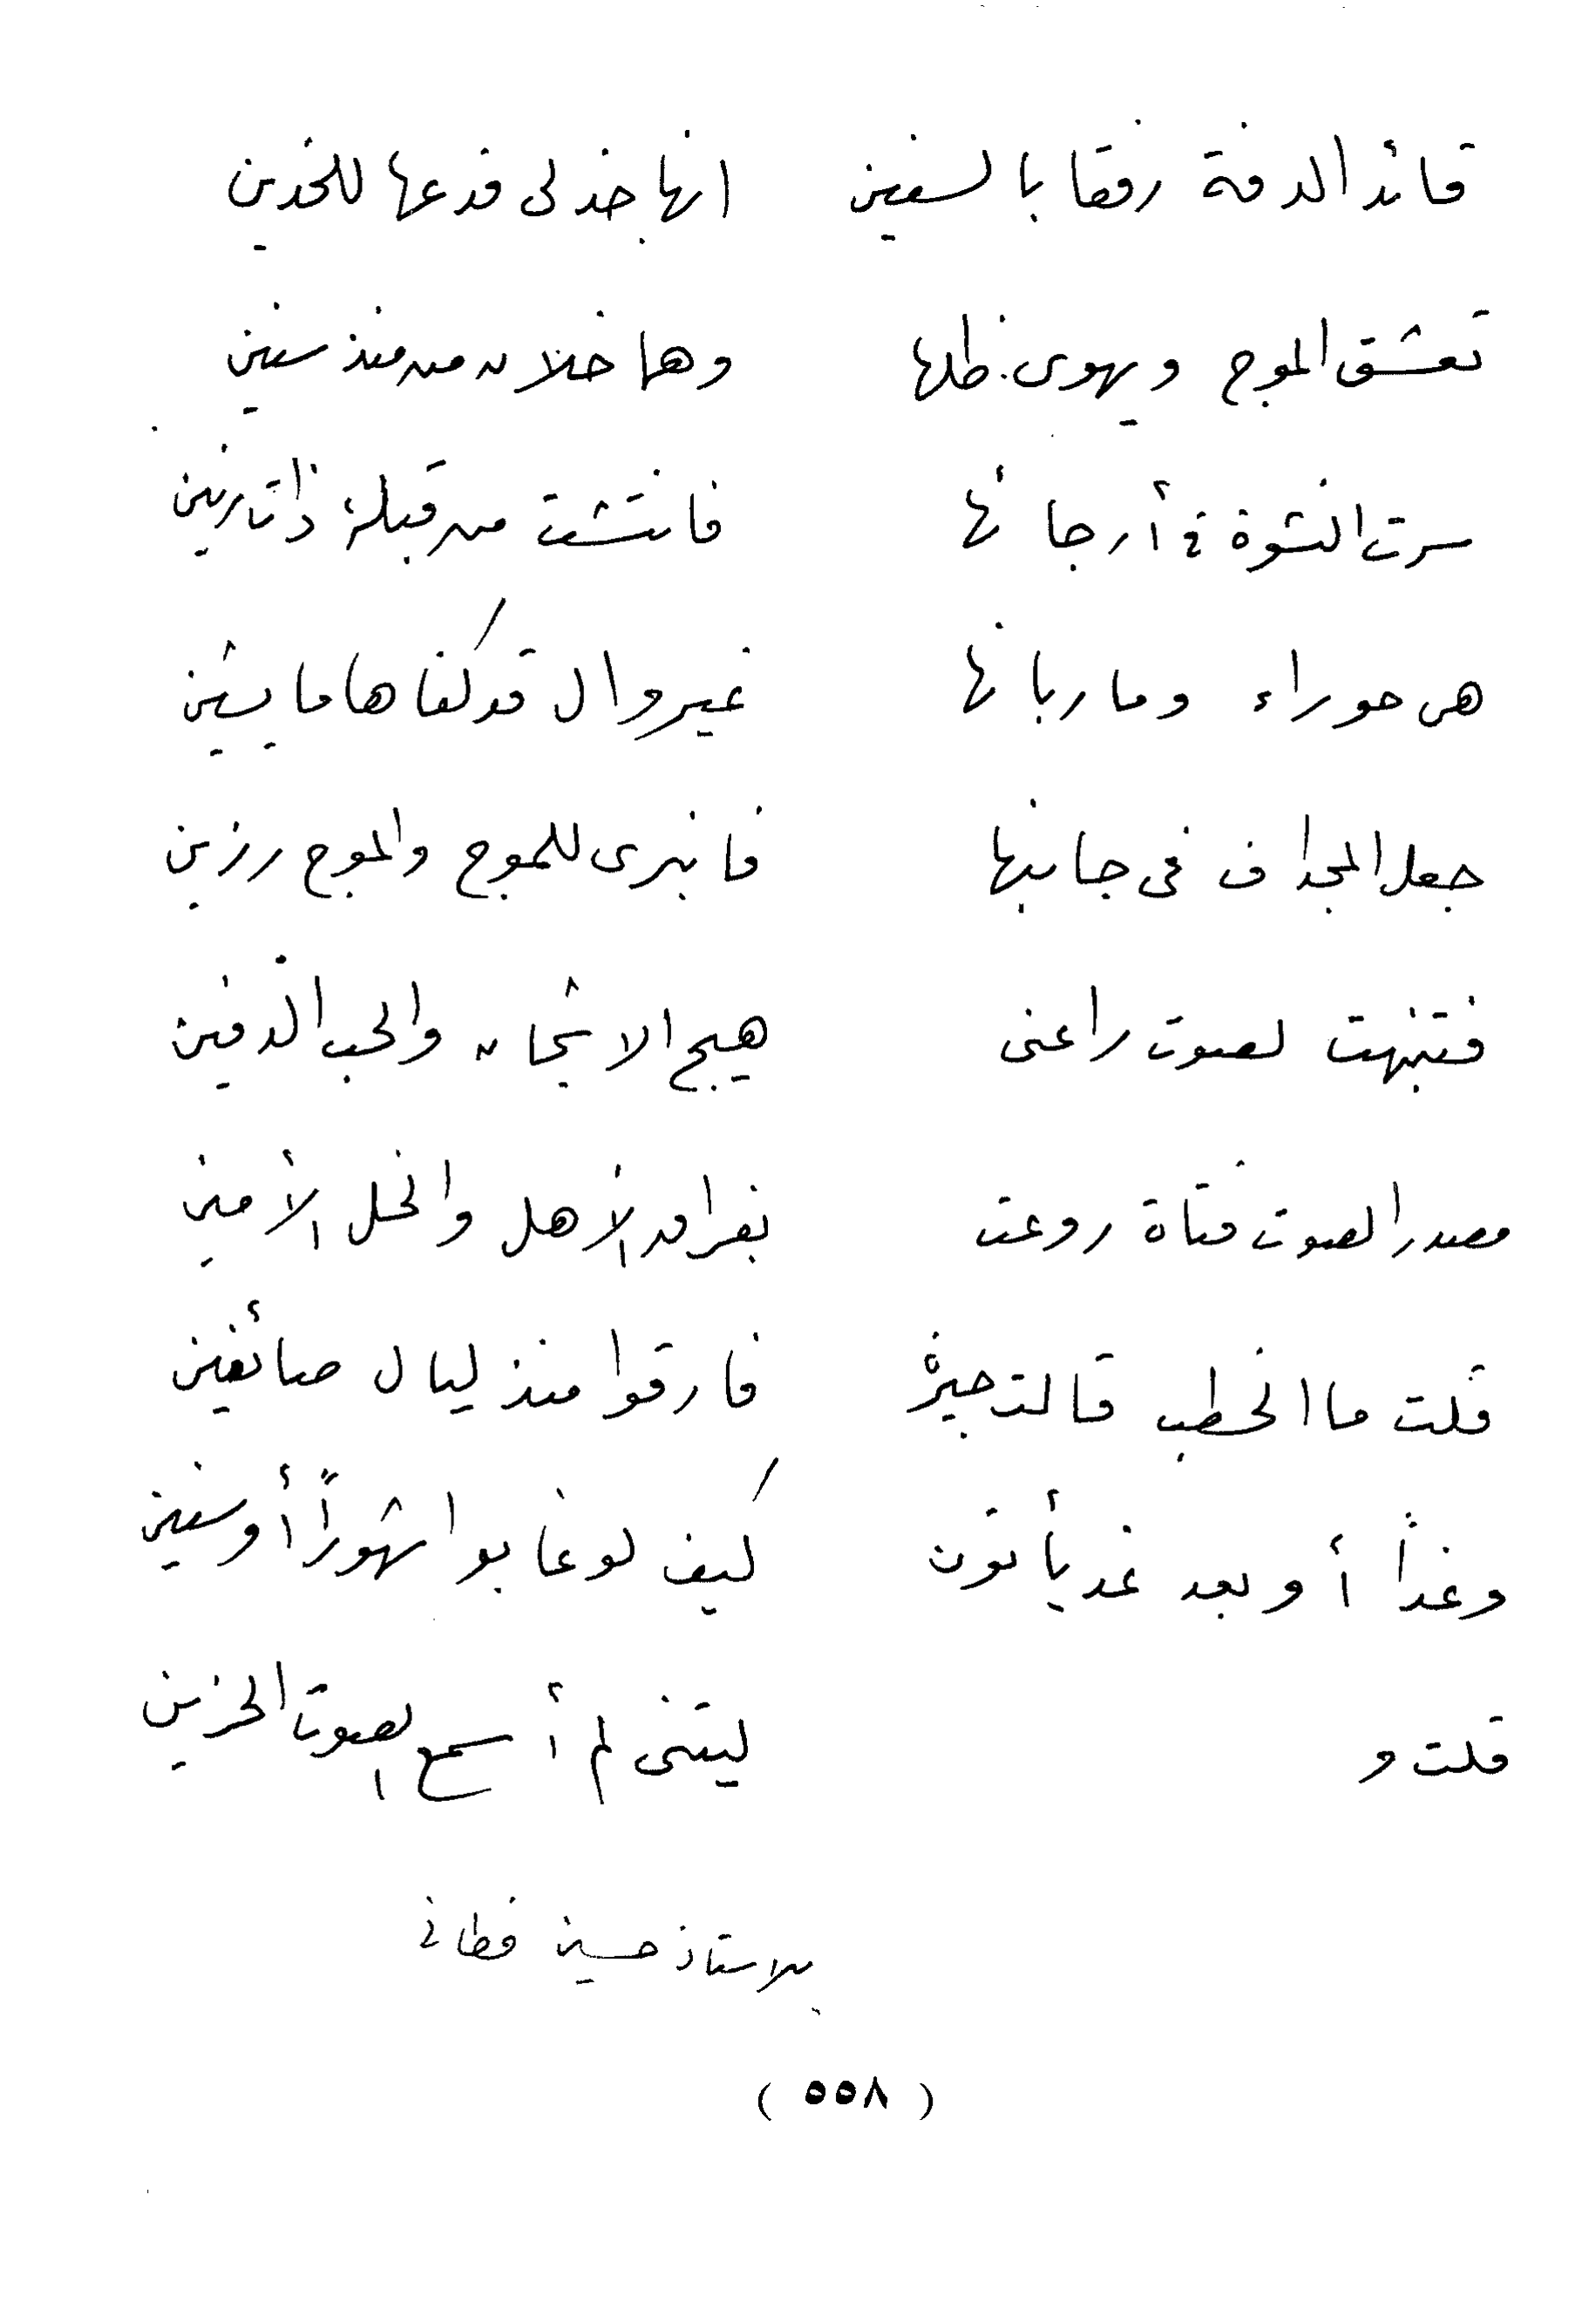 قائد الدفة رفقا بالسفين انها جذلى فدعها للخدين
تعشق الموج ويهوى ظلها وهما خلان من منذ سنين
سرت النشوة في أرجائها فانتشت من قبلة ذات رنين
هي حوراء وما ربانها غير وال قد كفاها ما يشين
جعل المجداف في جانبها فانبرى للموج والموج رزين
فتنبهت لصوت راعنى هيج الاشجان والحب الدفين
مصدر الصوت فتاة روعت بفراق الأهل والخل الأمين
قلت ما الخطب قالت جيرة فارقوا منذ ليال صائفين
وغداً أو بعد غد يأتون كيف لو غابوا شهوراً أو سنين
قلت و ليتنى لم أسمع الصوت الحزين
للاستاذ حسين فطاني
( ٥٥٨ )